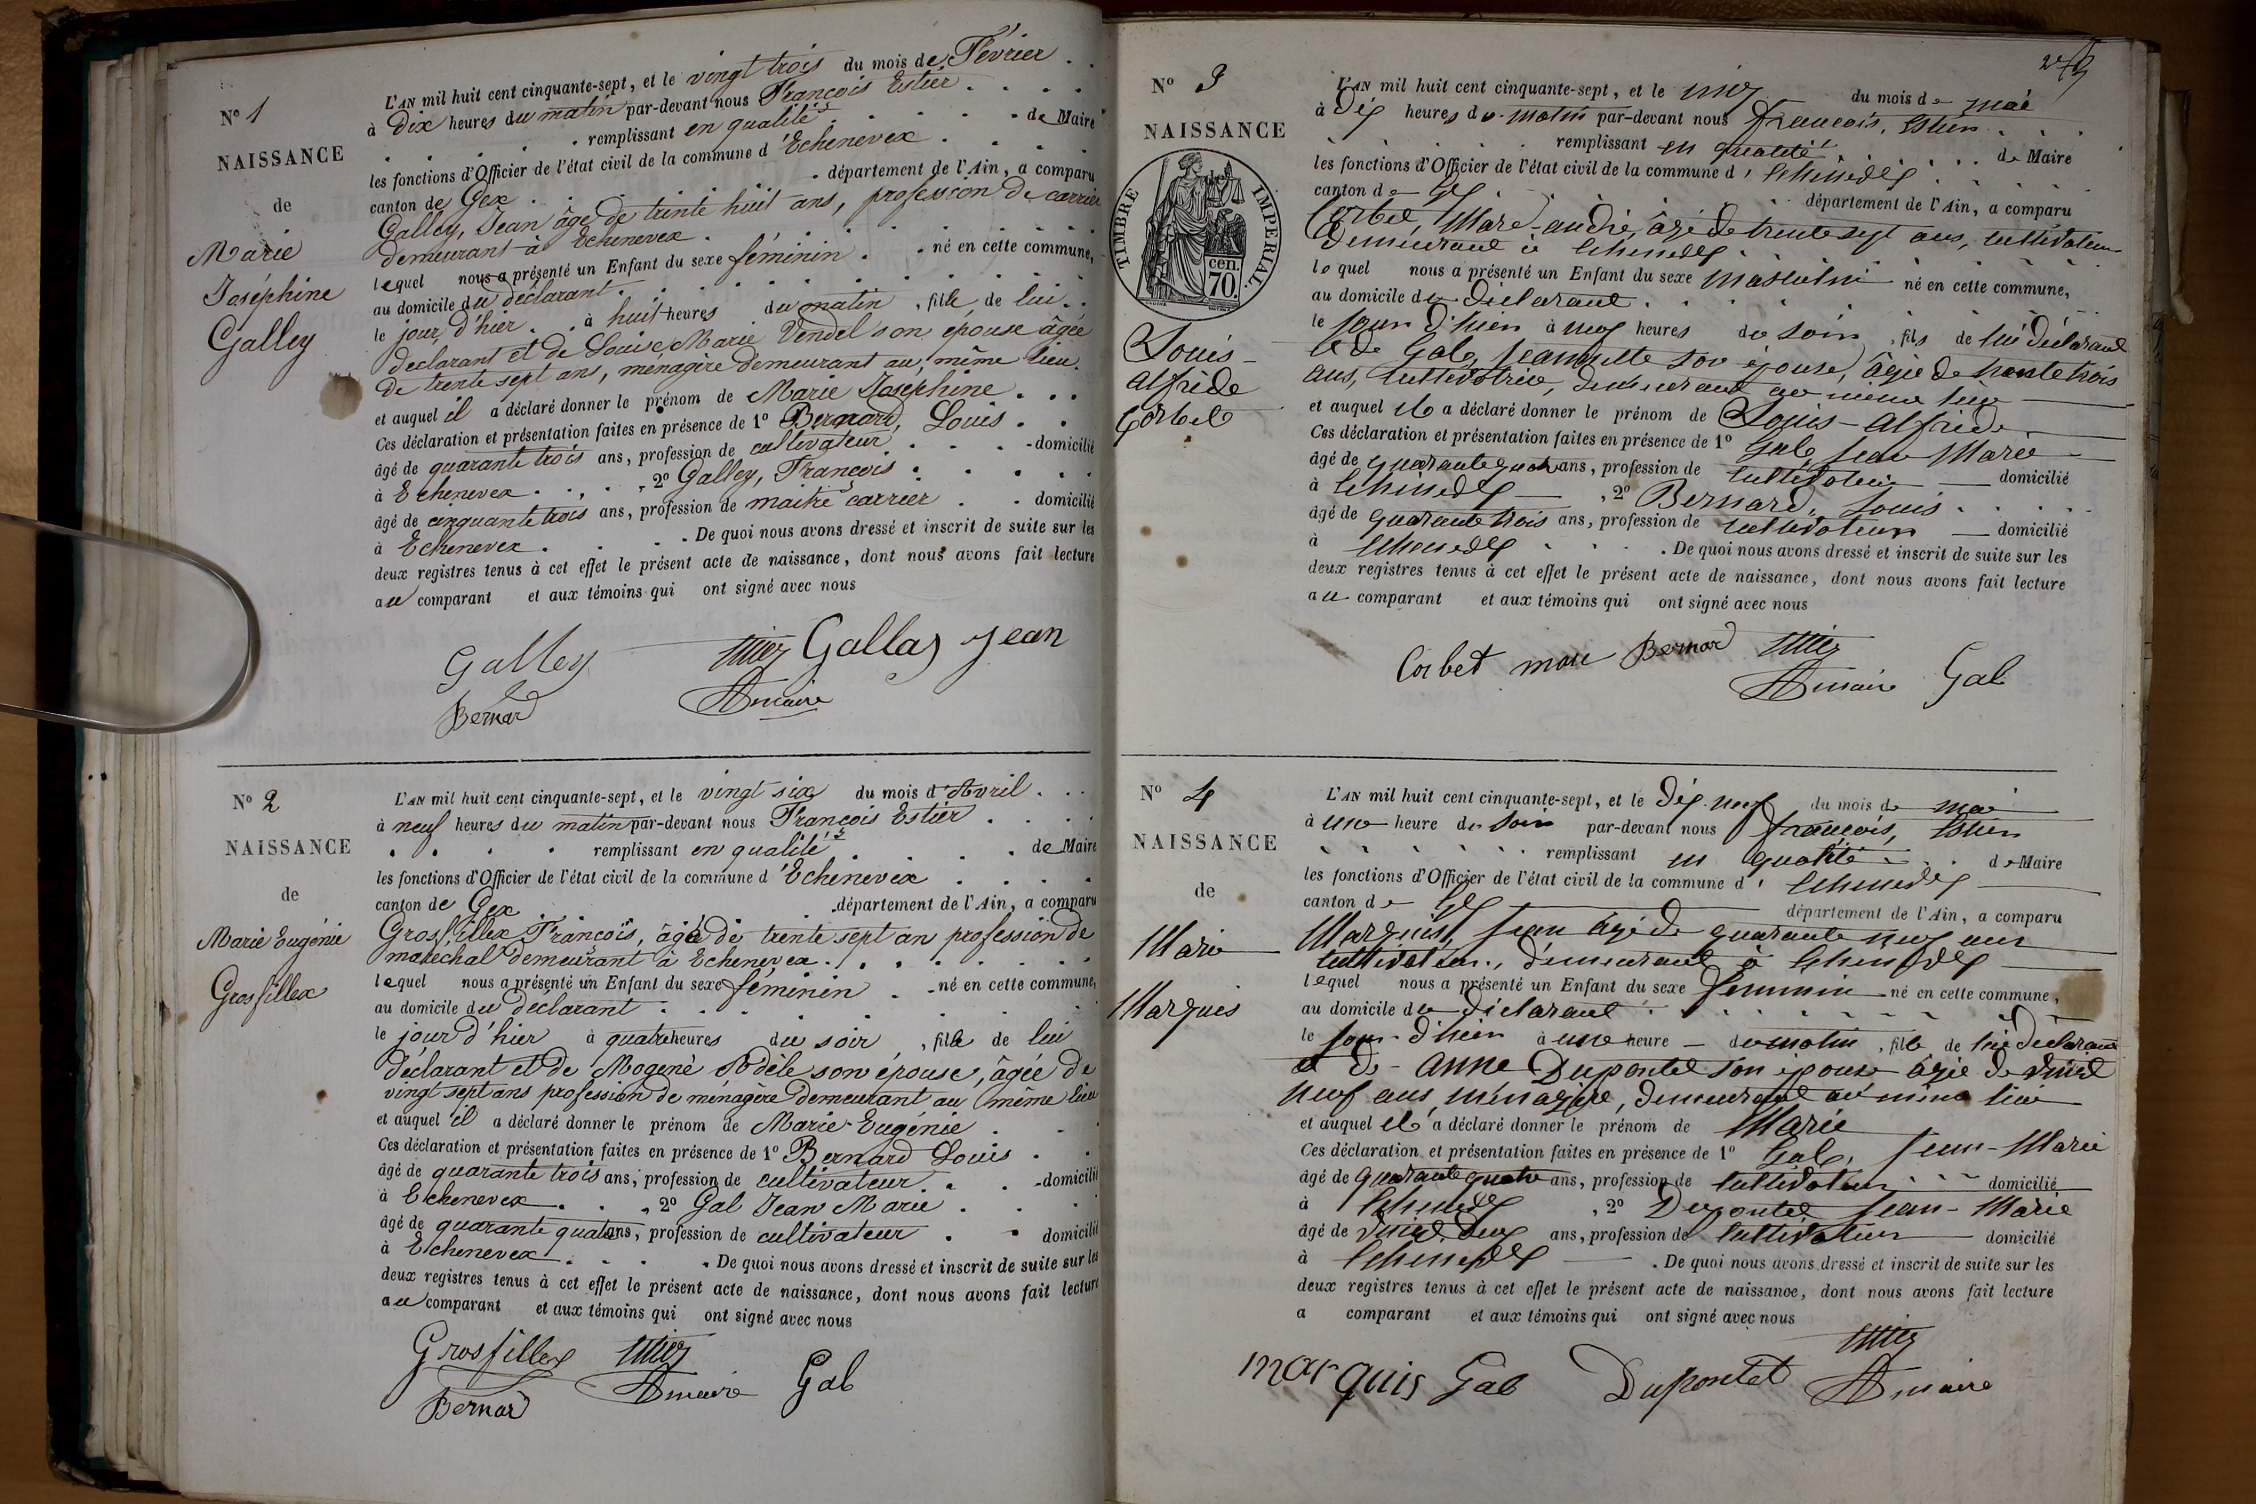 N° 1
NAISSANCE
de
Marie
Joséphine
Galley
L'AN mil huit cent cinquante-sept, et le vingt trois du mois de Février
à dix heures du matin par-devant nous François Estier
remplissant en qualité de Maire
les fonctions d'Officier de l'état civil de la commune d'Echenevex
canton de Gex département de l'Ain, a comparu
Galley, Jean âgé de trente huit ans, profession de carrier
demeurant à Echenevex
lequel nous a présenté un Enfant du sexe féminin né en cette commune,
au domicile du déclarant
le jour d'hier à huit heures du matin, fille de lui
déclarant et de Louise Marie Vendel son épouse âgée
de trente sept ans, ménagère demeurant au même lieu
et auquel il a déclaré donner le prénom de Marie Josephine
Ces déclaration et présentation faites en présence de 1° Bernard, Louis
âgé de quarante trois ans, profession de cultivateur domicilié
à Echenevex, 2° Galley, François
âgé de cinquante trois ans, profession de maitre carrier domicilié
à Echenevex. De quoi nous avons dressé et inscrit de suite sur les
deux registres tenus à cet effet le présent acte de naissance, dont nous avons fait lecture
au comparant et aux témoins qui ont signé avec nous
Galley Gallay Jean
Bernard maire
N° 2
NAISSANCE
de
Marie Eugénie
Grosfillex
L'AN mil huit cent cinquante-sept, et le vingt six du mois d'Avril
à neuf heures du matin par-devant nous François Estier
remplissant en qualité de Maire
les fonctions d'Officier de l'état civil de la commune d'Echenevex
canton de Gex département de l'Ain, a comparu
Grosfillex François, âgé de trente sept an profession de
maréchal demeurant à Echenevex
lequel nous a présenté un Enfant du sexe féminin né en cette commune,
au domicile du déclarant
le jour d'hier à quatre heures du soir, fille de lui
déclarant et de Mogenè Adèle son épouse, âgée de
vingt sept ans profession de ménagère demeurant au même lieu
et auquel il a déclaré donner le prénom de Marie-Eugénie
Ces déclaration et présentation faites en présence de 1° Bernard Louis
âgé de quarante trois ans, profession de cultivateur domicilié
à Echenevex, 2° Gal Jean Marie
âgé de quarante quatre ans, profession de cultivateur domicilié
à Echenevex. De quoi nous avons dressé et inscrit de suite sur les
deux registres tenus à cet effet le présent acte de naissance, dont nous avons fait lecture
au comparant et aux témoins qui ont signé avec nous
Grosfillex Gal
Bernard maire
N° 3
NAISSANCE
TIMBRE IMPERIAL
cen.
70.
Louis-
alfrède
Corbet
L'AN mil huit cent cinquante-sept, et le du mois de mai
à dix heures du matin par-devant nous François, Estier
remplissant en qualité de Maire
les fonctions d'Officier de l'état civil de la commune d'Echenevex
canton de Gex département de l'Ain, a comparu
Corbet, Marc-andré, âgé de trente sept ans, cultivateur
demeurant à Echenevex
lequel nous a présenté un Enfant du sexe masculin né en cette commune,
au domicile du déclarant
le jour d'hier à neuf heures du soir, fils de lui déclarant
et de Gal, Jeannette son épouse, âgée de trente trois
ans, cultivatrice, demeurant au même lieu
et auquel il a déclaré donner le prénom de Louis-alfrède
Ces déclaration et présentation faites en présence de 1° Gal, Jean Marie
âgé de quarante quatre ans, profession de cultivateur domicilié
à Echenevex, 2° Bernard, Louis
âgé de quarante trois ans, profession de cultivateur domicilié
à Echenevex. De quoi nous avons dressé et inscrit de suite sur les
deux registres tenus à cet effet le présent acte de naissance, dont nous avons fait lecture
au comparant et aux témoins qui ont signé avec nous
Corbet marc Bernard
maire Gal
N° 4
NAISSANCE
de
Marie
Marquis
L'AN mil huit cent cinquante-sept, et le dix-neuf du mois de mai
à une heure du soir par-devant nous François, Estier
remplissant en qualité de Maire
les fonctions d'Officier de l'état civil de la commune d'Echenevex
canton de Gex département de l'Ain, a comparu
Marquis, Jean âgé de quarante neuf ans
cultivateur, demeurant à Echenevex
lequel nous a présenté un Enfant du sexe féminin né en cette commune,
au domicile du déclarant
le jour d'hier à une heure du matin, fille de lui déclarant
et de anne Dupontet son épouse âgée de vingt
neuf ans, ménagère, demeurant au même lieu
et auquel il a déclaré donner le prénom de Marie
Ces déclaration et présentation faites en présence de 1° Gal, Jean-Marie
âgé de quarante quatre ans, profession de cultivateur domicilié
à Echenevex, 2° Dupontet Jean-Marie
âgé de vingt deux ans, profession de cultivateur domicilié
à Echenevex. De quoi nous avons dressé et inscrit de suite sur les
deux registres tenus à cet effet le présent acte de naissance, dont nous avons fait lecture
a comparant et aux témoins qui ont signé avec nous
marquis Gal Dupontet maire